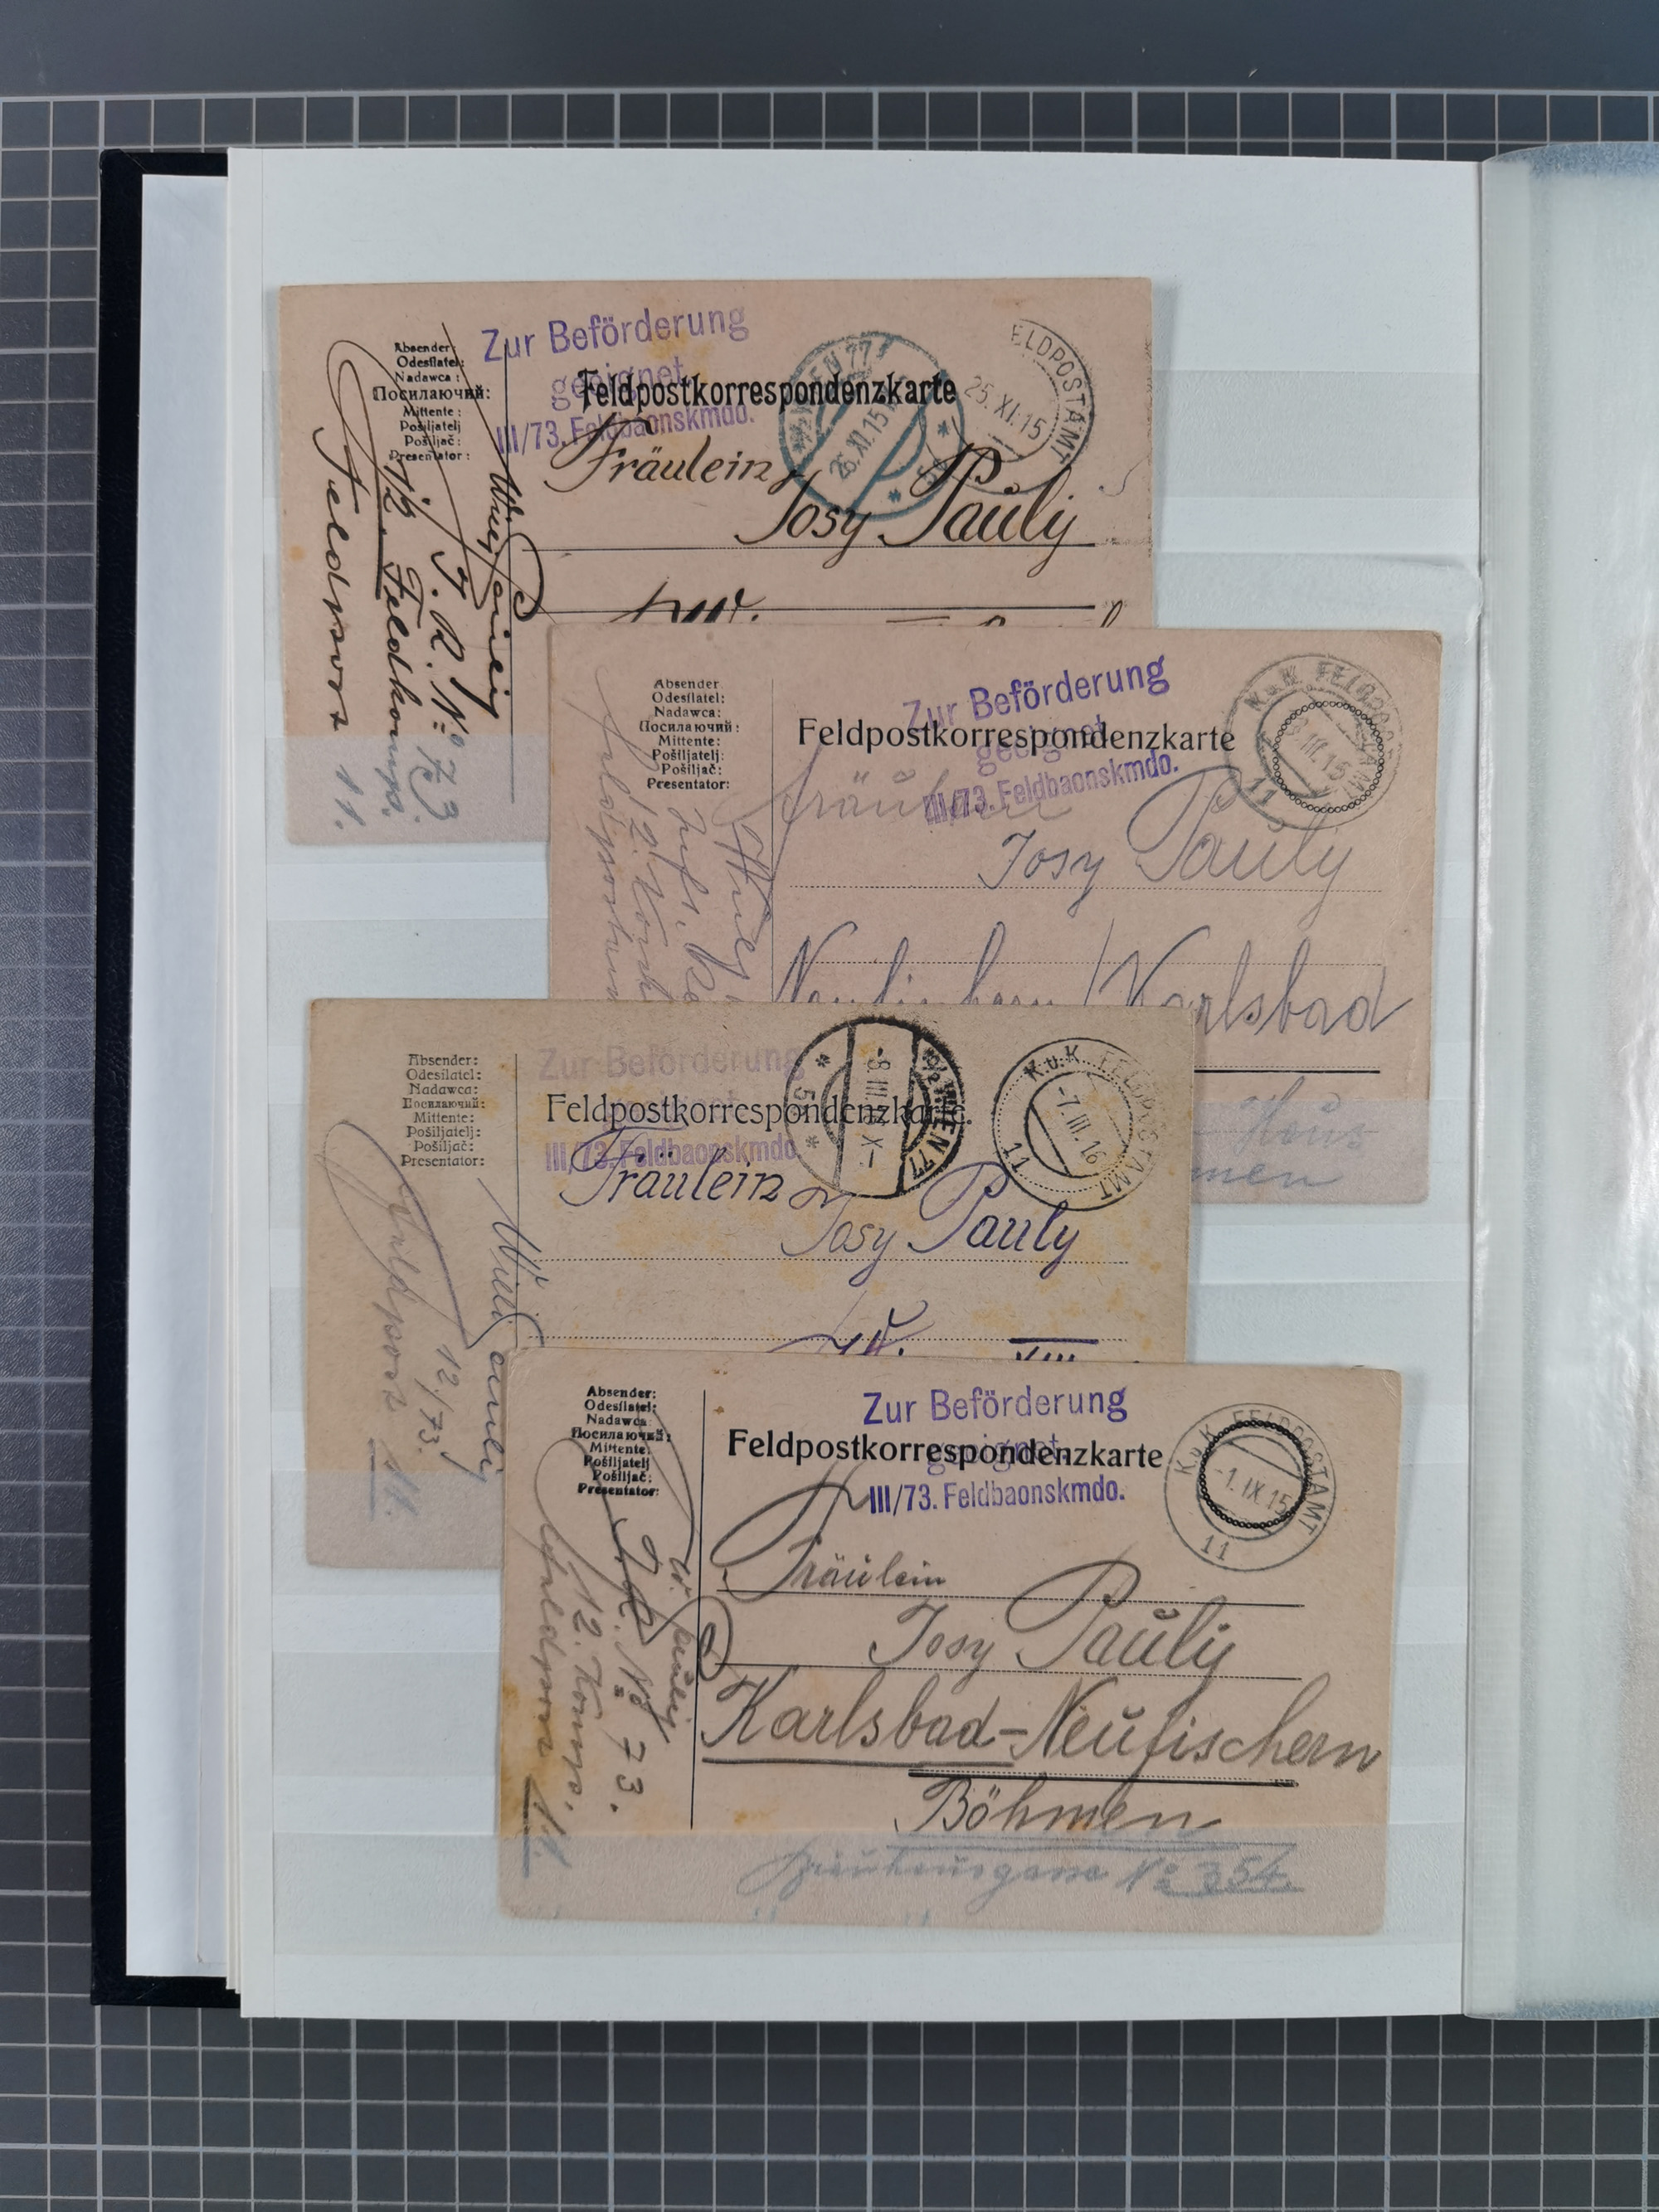 Absender:
Odesílatel:
Nadawca:
Посилаючий:
Mittente:
Pošiljatelj
Pošiljač:
Presentator:
Zur Beförderung
geeignet
III/73. Feldbaonskmdo.
Feldpostkorrespondenzkarte
WIEN 77
26.XI.15
FELDPOSTAMT
25.XI.15
Fräulein
Josy Pauly
J. R. No 73
12. Feldkomp.
Feldpost
11.
Absender
Odesílatel:
Nadawca:
Посилаючий:
Mittente:
Pošiljatelj:
Pošiljač:
Presentator:
Zur Beförderung
geeignet
III/73. Feldbaonskmdo.
Feldpostkorrespondenzkarte
K.u.K. FELDPOSTAMT
III.15
11
Fräulein
Josy Pauly
Karlsbad
12.
Absender:
Odesílatel:
Nadawca:
Посилаючий:
Mittente:
Pošiljatelj:
Pošiljač:
Presentator:
Zur Beförderung
III/73. Feldbaonskmdo.
Feldpostkorrespondenzkarte.
WIEN 77
-8.III
K.u.K. FELDPOSTAMT
-7.III.16
11
Fräulein
Josy Pauly
XIII
12/73.
Feldpost 11.
Absender:
Odesílatel:
Nadawca
Посилаючий:
Mittente:
Pošiljatelj
Pošiljač:
Presentator:
Zur Beförderung
geeignet
III/73. Feldbaonskmdo.
Feldpostkorrespondenzkarte
K.u.K. FELDPOSTAMT
-1.IX.15
11
Fräulein
Josy Pauly
Karlsbad-Neufischern
Böhmen
No 354.
W. Pauly
J. R. No 73.
12. Komp.
Feldpost 11.